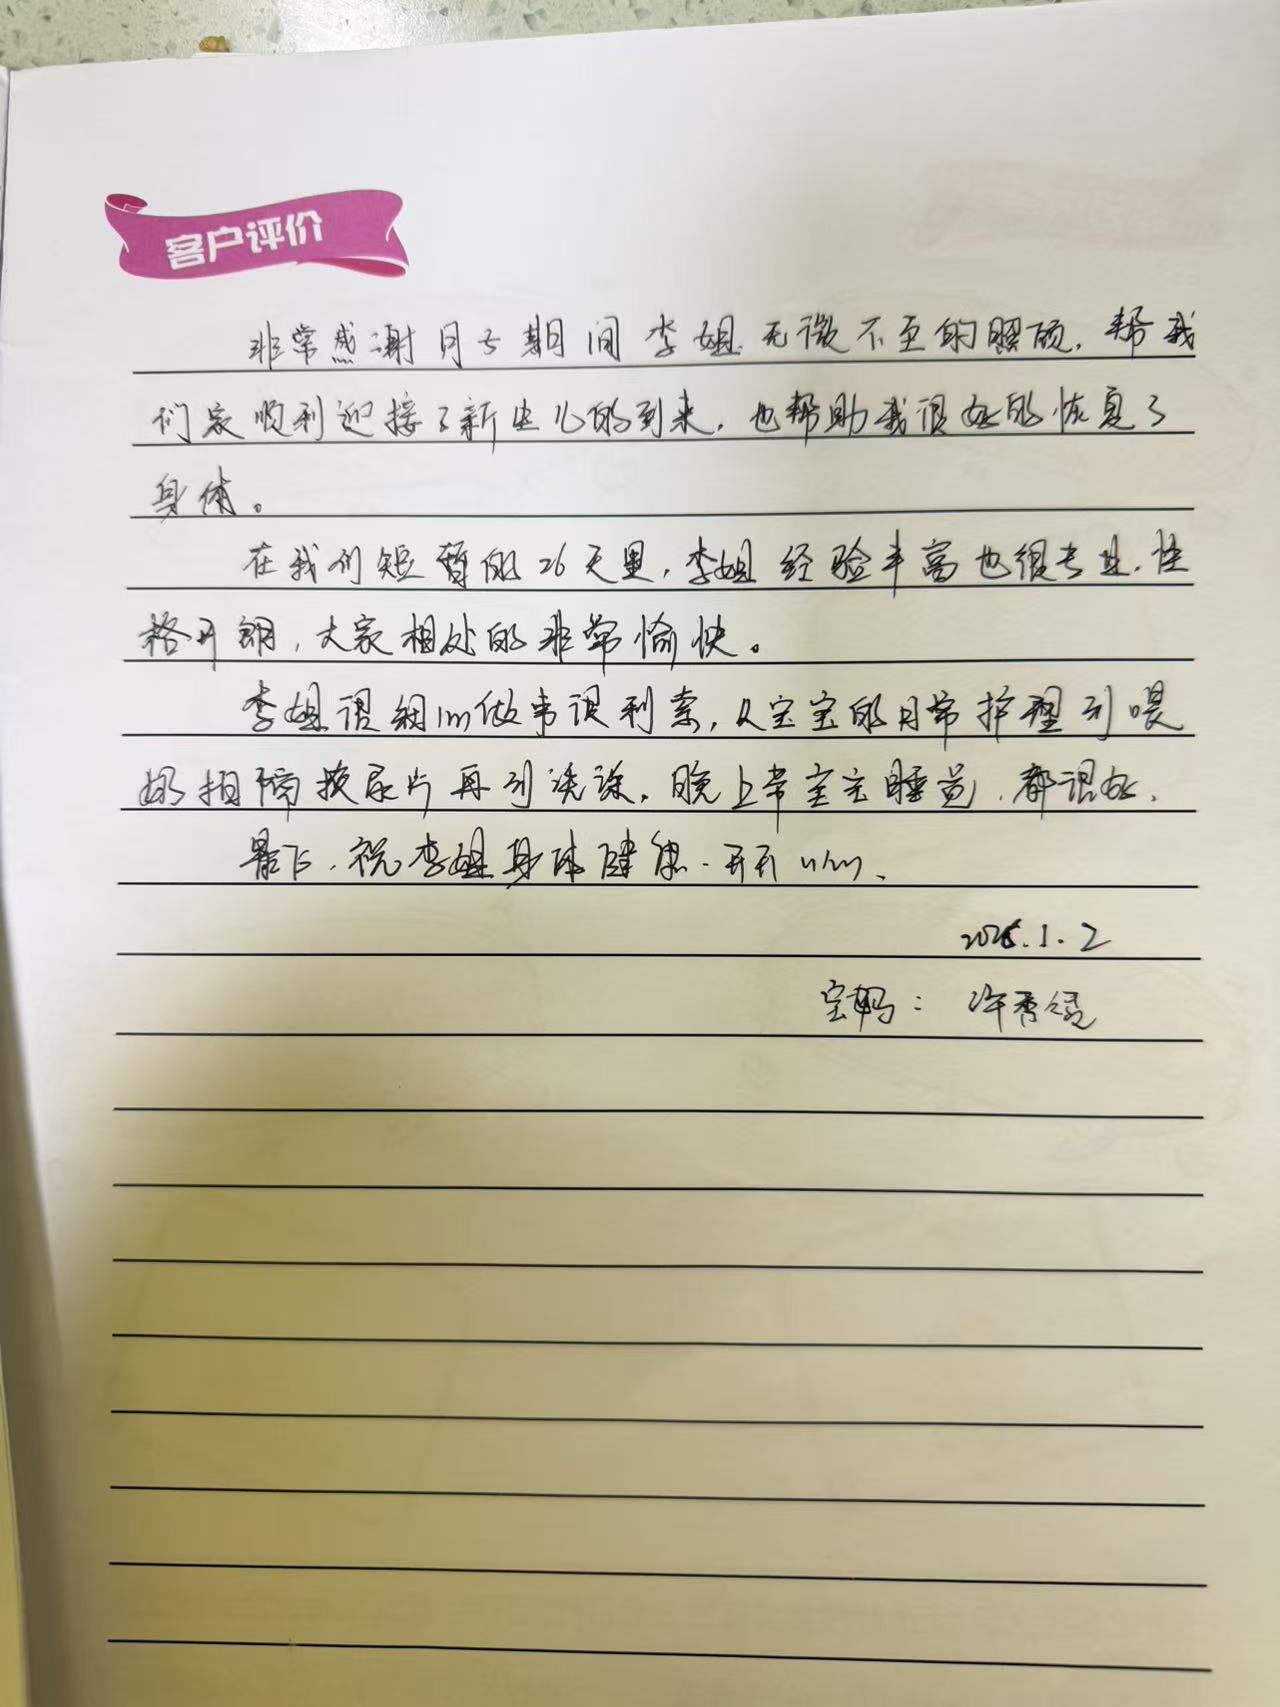 客户评价
非常感谢月子期间李姐无微不至的照顾，帮我
们家顺利迎接了新生儿的到来，也帮助我很好的恢复了
身体。
在我们短暂的26天里，李姐经验丰富也很专业，性
格开朗，大家相处的非常愉快。
李姐很细心做事很利索，从宝宝的日常护理到喂
奶拍嗝换尿片再到洗澡，晚上带宝宝睡觉，都很好，
最后，祝李姐身体健康，开开心心、
1.2
宝妈：许秀